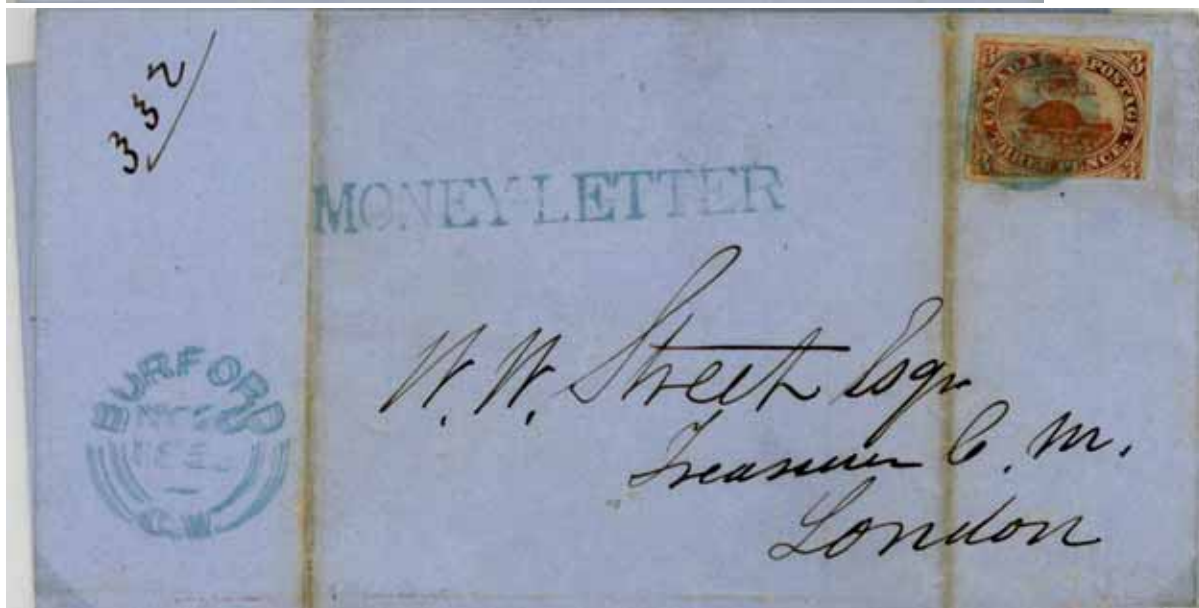 332
3 3
CANADA POSTAGE
THREE PENCE
3 3
MONEY-LETTER
W. W. Street Esqr
Treasurer C. M.
London
BURFORD
C.W.